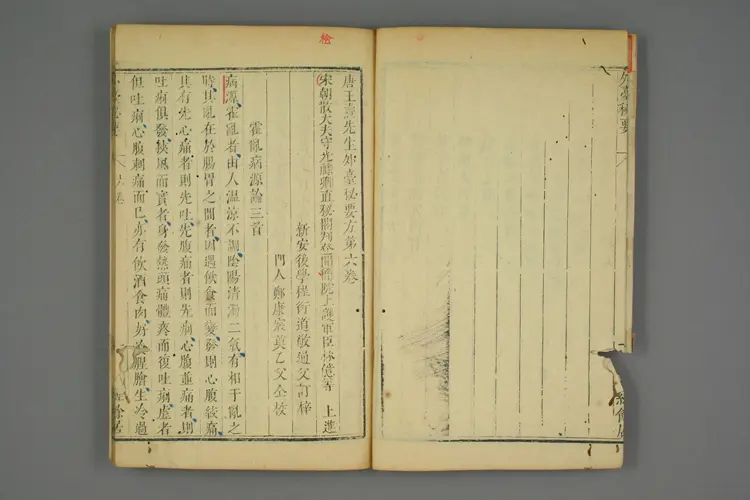 檢
唐王燾先生外臺秘要方第六卷
宋朝散大夫守光祿卿直秘閣判登聞檢院上護軍臣林億等 上進
新安後學程衍道敬通父訂梓
門人鄭康宸莫乙父仝校
霍亂病源論三首
病源霍亂者由人溫涼不調陰陽清濁二氣有相干亂之
時其亂在於腸胃之間者因遇飲食而變發則心腹絞痛
其有先心痛者則先吐先腹痛者則先痢心腹並痛者則
吐痢俱發挾風而實者身發熱頭痛體疼而復吐痢虛者
但吐痢心腹刺痛而已亦有飲酒食肉好冷腥膾生冷過
六卷
外臺秘要